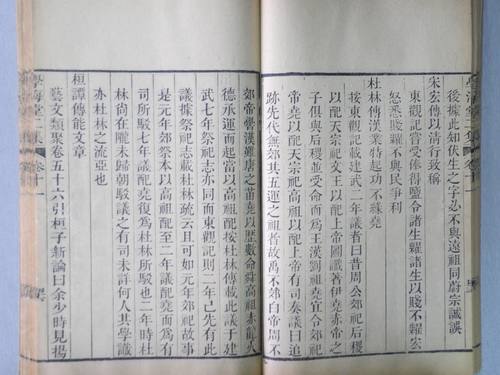 後據此知伏生之字必不與遠祖同蔚宗誠誤
宋宏傳以清行致稱
東觀記嘗受俸得鹽合諸生糶諸生以賤不糶宏
怒悉賤糶不與民爭利
杜林傳漢業特起功不緣堯
按東觀記載建武二年議者曰昔周公郊祀后稷
以配天宗祀文王以配上帝圖讖著伊堯赤帝之
子俱與后稷並受命而爲王漢劉祖堯宜令郊祀
帝堯以配天宗祀高祖以配上帝有司奏議曰追
跡先代無郊其五運之祖者故禹不郊白帝周不
郊帝嚳漢雖唐之苗堯以歷數命舜高祖赤龍火
德承運而起當以高祖配按杜林傳載此議于建
武七年祭祀志亦同而東觀記則二年已先有此
議據祭祀志載杜林疏云且可如元年郊祀故事
是元年郊祭本以高祖配至二年議配堯而爲有
司所駁七年議配堯復爲杜林所駁也二年時杜
林尚在隴未歸朝駁議之有司未詳何人其學識
亦杜林之流亞也
桓譚傳能文章
藝文類聚卷五十六引桓子新論曰余少時見楊
學海堂二集 卷十一